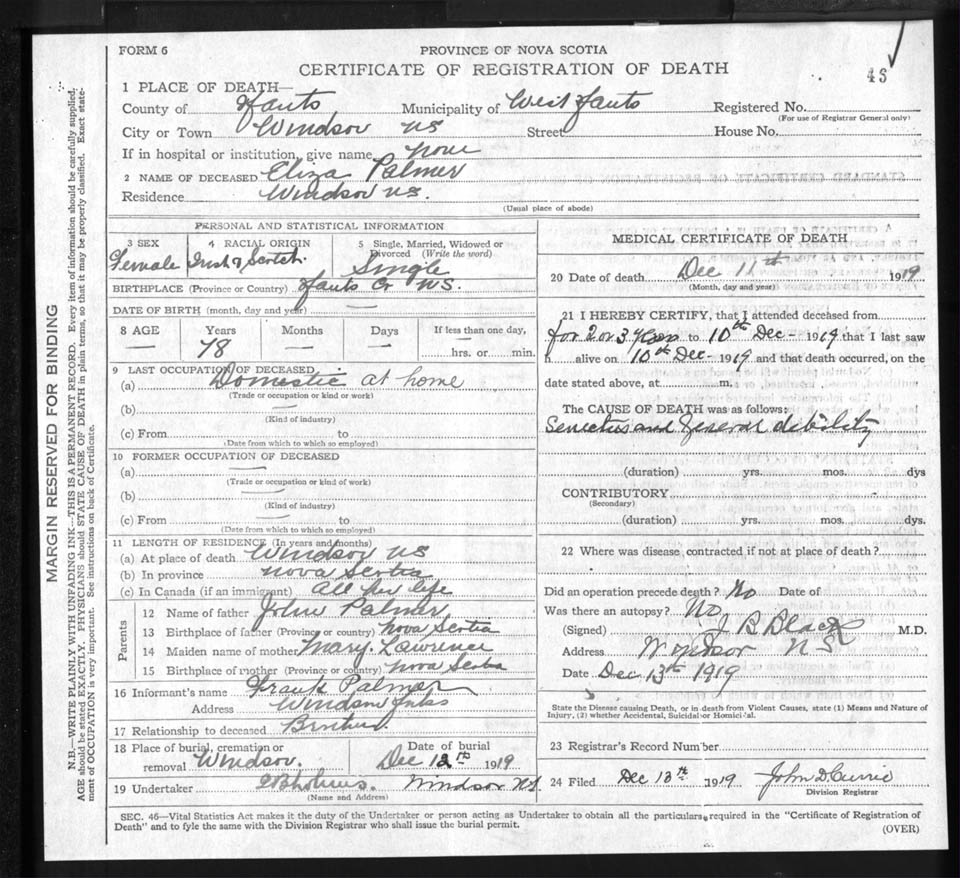 FORM 6
PROVINCE OF NOVA SCOTIA
CERTIFICATE OF REGISTRATION OF DEATH
43
1 PLACE OF DEATH—
County of Hants Municipality of West Hants Registered No.
(For use of Registrar General only)
City or Town Windsor NS Street House No.
If in hospital or institution, give name None
2 NAME OF DECEASED Eliza Palmer
Residence Windsor NS.
(Usual place of abode)
PERSONAL AND STATISTICAL INFORMATION
3 SEX 4 RACIAL ORIGIN 5 Single, Married, Widowed or Divorced (Write the word)
Female Irish & Scotch Single
BIRTHPLACE (Province or Country) Hants Co NS.
DATE OF BIRTH (month, day and year)
8 AGE Years Months Days If less than one day,
— 78 — — hrs. or min.
9 LAST OCCUPATION OF DECEASED
(a) Domestic at home
(Trade or occupation or kind or work)
(b) —
(Kind of industry)
(c) From to
(Date from which to which so employed)
10 FORMER OCCUPATION OF DECEASED
(a) —
(Trade or occupation or kind of work)
(b) —
(Kind of industry)
(c) From — to
(Date from which to which so employed)
11 LENGTH OF RESIDENCE (In years and months)
(a) At place of death Windsor NS
(b) In province Nova Scotia
(c) In Canada (if an immigrant) All her life
Parents
12 Name of father John Palmer
13 Birthplace of father (Province or country) Nova Scotia
14 Maiden name of mother Mary Lawrence
15 Birthplace of mother (Province or country) Nova Scotia
16 Informant's name Frank Palmer
Address Windsor
17 Relationship to deceased Brother
18 Place of burial, cremation or removal Windsor. Date of burial Dec 12th 1919
19 Undertaker Windsor NS
(Name and Address)
MEDICAL CERTIFICATE OF DEATH
20 Date of death Dec 11th 1919
(Month, day and year)
21 I HEREBY CERTIFY, that I attended deceased from
for 2 or 3 years to 10th Dec- 1919 that I last saw
h alive on 10th Dec- 1919 and that death occurred, on the
date stated above, at m.
The CAUSE OF DEATH was as follows:
Senectus and General debility
(duration) yrs. mos. dys
CONTRIBUTORY
(Secondary)
(duration) yrs. mos. dys.
22 Where was disease contracted if not at place of death?
Did an operation precede death? No Date of
Was there an autopsy? No
(Signed) J B Black M.D.
Address Windsor N S
Date Dec 13th 1919
State the Disease causing Death, or in death from Violent Causes, state (1) Means and Nature of
Injury, (2) whether Accidental, Suicidal or Homicidal.
23 Registrar's Record Number
24 Filed Dec 13th 1919 John D Currie
Division Registrar
SEC. 46—Vital Statistics Act makes it the duty of the Undertaker or person acting as Undertaker to obtain all the particulars required in the "Certificate of Registration of
Death" and to fyle the same with the Division Registrar who shall issue the burial permit.
(OVER)
MARGIN RESERVED FOR BINDING
N.B.—WRITE PLAINLY WITH UNFADING INK—THIS IS A PERMANENT RECORD. Every item of information should be carefully supplied.
AGE should be stated EXACTLY. PHYSICIANS should STATE CAUSE OF DEATH in plain terms, so that it may be properly classified. Exact state-
ment of OCCUPATION is very important. See instructions on back of Certificate.